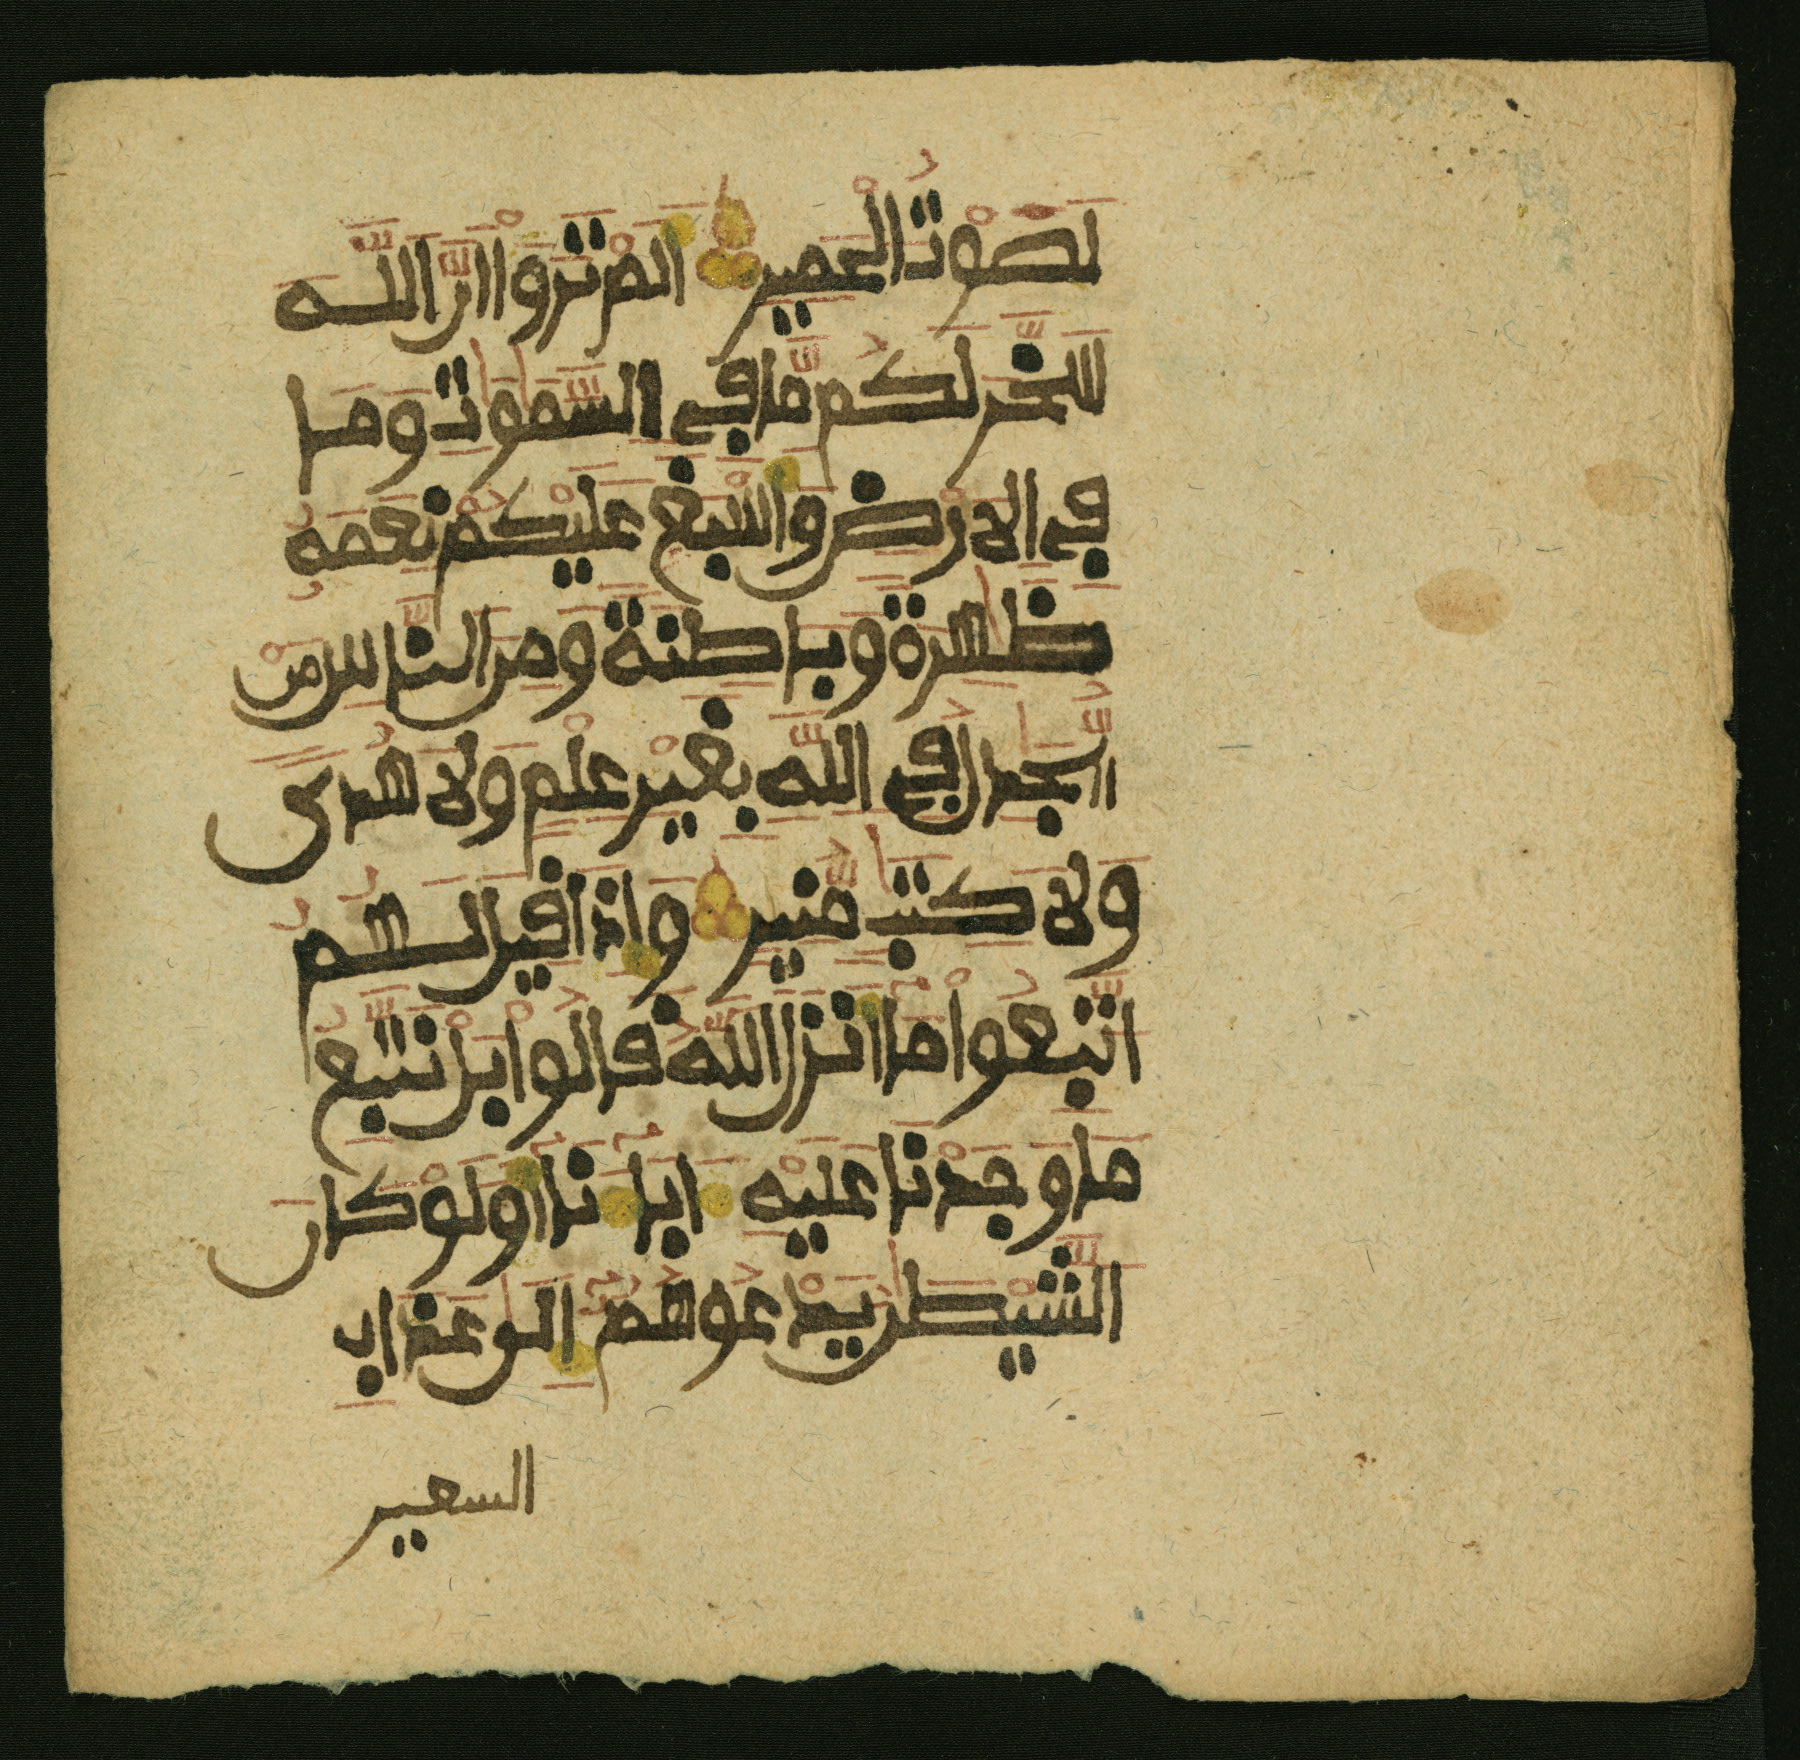 لَصَوْتُ الْحَمِيرِ أَلَمْ تَرَوْاْ أَنَّ اللَّهَ
سَخَّرَ لَكُم مَّا فِي السَّمَٰوَٰتِ وَمَا
فِي الَارْضِ وَأَسْبَغَ عَلَيْكُمْ نِعَمَهُ
ظَٰهِرَةً وَبَاطِنَةً وَمِنَ النَّاسِ مَنْ
يُّجَٰدِلُ فِي اللَّهِ بِغَيْرِ عِلْمٍ وَلَا هُدًى
وَلَا كِتَٰبٍ مُّنِيرٍ وَإِذَا قِيلَ لَهُمُ
اتَّبِعُواْ مَا أَنزَلَ اللَّهُ قَالُواْ بَلْ نَتَّبِعُ
مَا وَجَدْنَا عَلَيْهِ ءَابَاءَنَا أَوَلَوْ كَانَ
الشَّيْطَٰنُ يَدْعُوهُمْ إِلَىٰ عَذَابِ
السعير